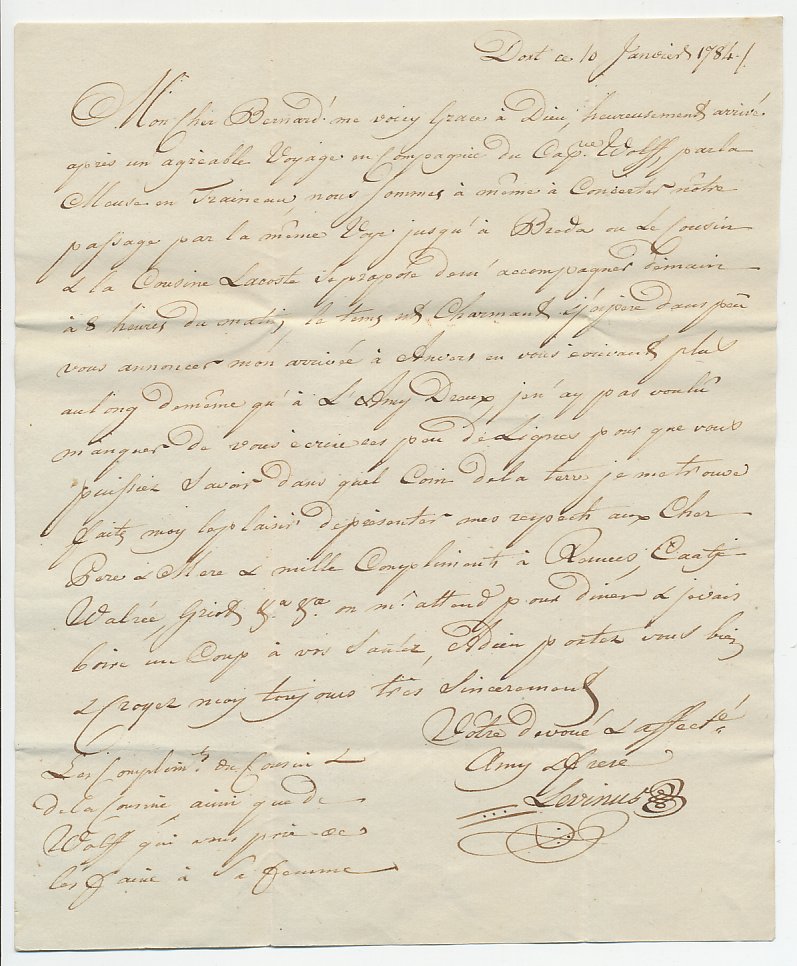 Dort ce 10 Janvier 1784./.
Mon Cher Bernard! me voicy Grace à Dieu, heureusement arrivé
après un agréable Voyage en Compagnie du Capne. Wolff, par la
Meuse en Traineau, nous sommes à même à Concerter nôtre
passage par la même Voye jusqu'à Breda ou Le Cousin
& la Cousine Lacoste se propose de m'accompagner demain
à 8 heures du matin, le tems est Charmant & j'espère dans peu
vous annoncer mon arrivée à Anvers en vous écrivant plus
au long de même qu'à L'Amy Dreux je n'ay pas voulu
manquer de vous écrire ces peu de Lignes pour que vous
puissiez Savoir dans quel Coin de la terre je me trouve
faite moy le plaisir de présenter mes respects aux Cher
Pere & Mere & mille Compliments à Caatje
Walrée, Griot &a. &a. on m'attend pour diner & je vais
boire un Coup à vos Santéz, Adieu portez vous bien
& Croyez moy toujours très Sincerement
Votre devoué & affecté.
Amy & frere
Levinus
Les Complimts. du Cousin &
de la Cousine ainsi que de
Wolff qui vous prie de
les faire à Sa femme